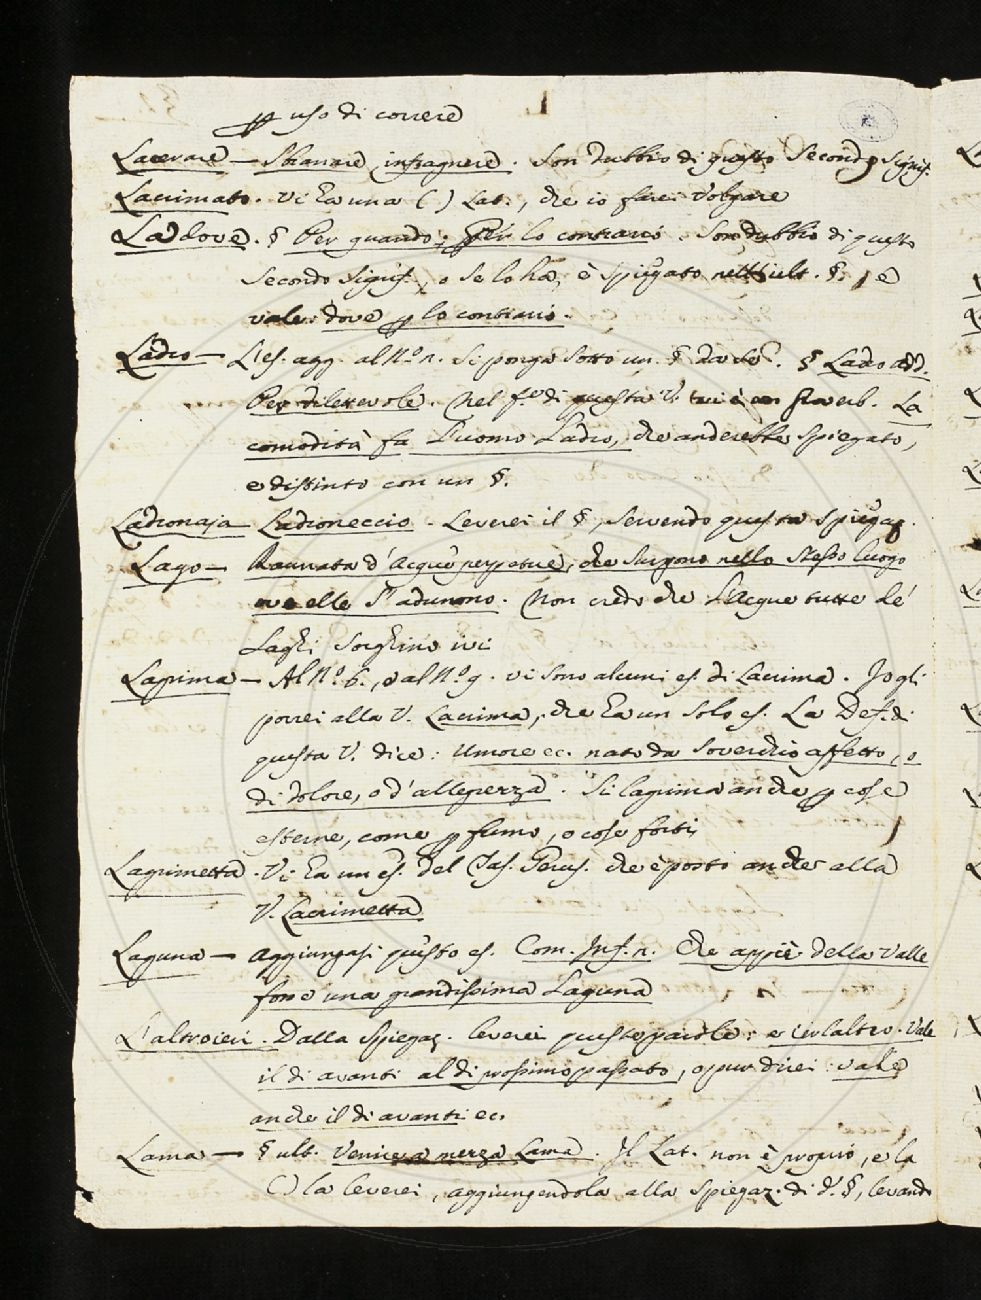 p uso di correre
Lacerare — Sbranare, infragnere. Son dubbio di questo Secondo signif.
Lacrimato. Vi ha una ( ) Lat., che io farei Volgare
Laddove. § Per quando; Per lo contrario. Son dubbio di questo
Secondo signif., o se lo ha, è spiegato nell'ult. §, e
vale: dove p lo contrario.
Ladro — L'es. agg. al N.º 1. si ponga sotto un § da se. § Ladro add.
Per dilettevole. Nel f.e di questa V. vi è un Proverb. La
comodità fa l'uomo Ladro, che anderebbe spiegato,
e distinto con un §.
Ladronaja Ladroneccio. Leverei il §, servendo questa spiegaz.
Lago — Raunata d'Acque perpetue, che surgono nello stesso luogo
ove elle s'adunono. Non credo che l'Acque tutte de'
Laghi sorghino ivi
Lagrima — Al N.º 6., e al N.º 9. vi sono alcuni es. di Lacrima. Io gli
porrei alla V. Lacrima, che ha un solo es. La Def. di
questa V. dice: Umore ec. nato da soverchio affetto, o
di dolore, o d'allegrezza. Si lagrima anche p cose
esterne, come p fumo, o cose forti
Lagrimetta. Vi ha un es. del Tas. Gerus. che è posto anche alla
V. Lacrimetta
Laguna — aggiungasi questo es. Com. Inf. 1. Che appiè della valle
fosse una grandissima Laguna
L'altroieri. Dalla spiegaz. leverei queste parole: e Vale
il dì avanti al dì prossimo passato, o pur direi: vale
anche il dì avanti ec.
Lama — § ult. Venire a mezza Lama. Il Lat. non è proprio, e la
( ) la leverei, aggiungendola alla spiegaz. di d.º §, levando